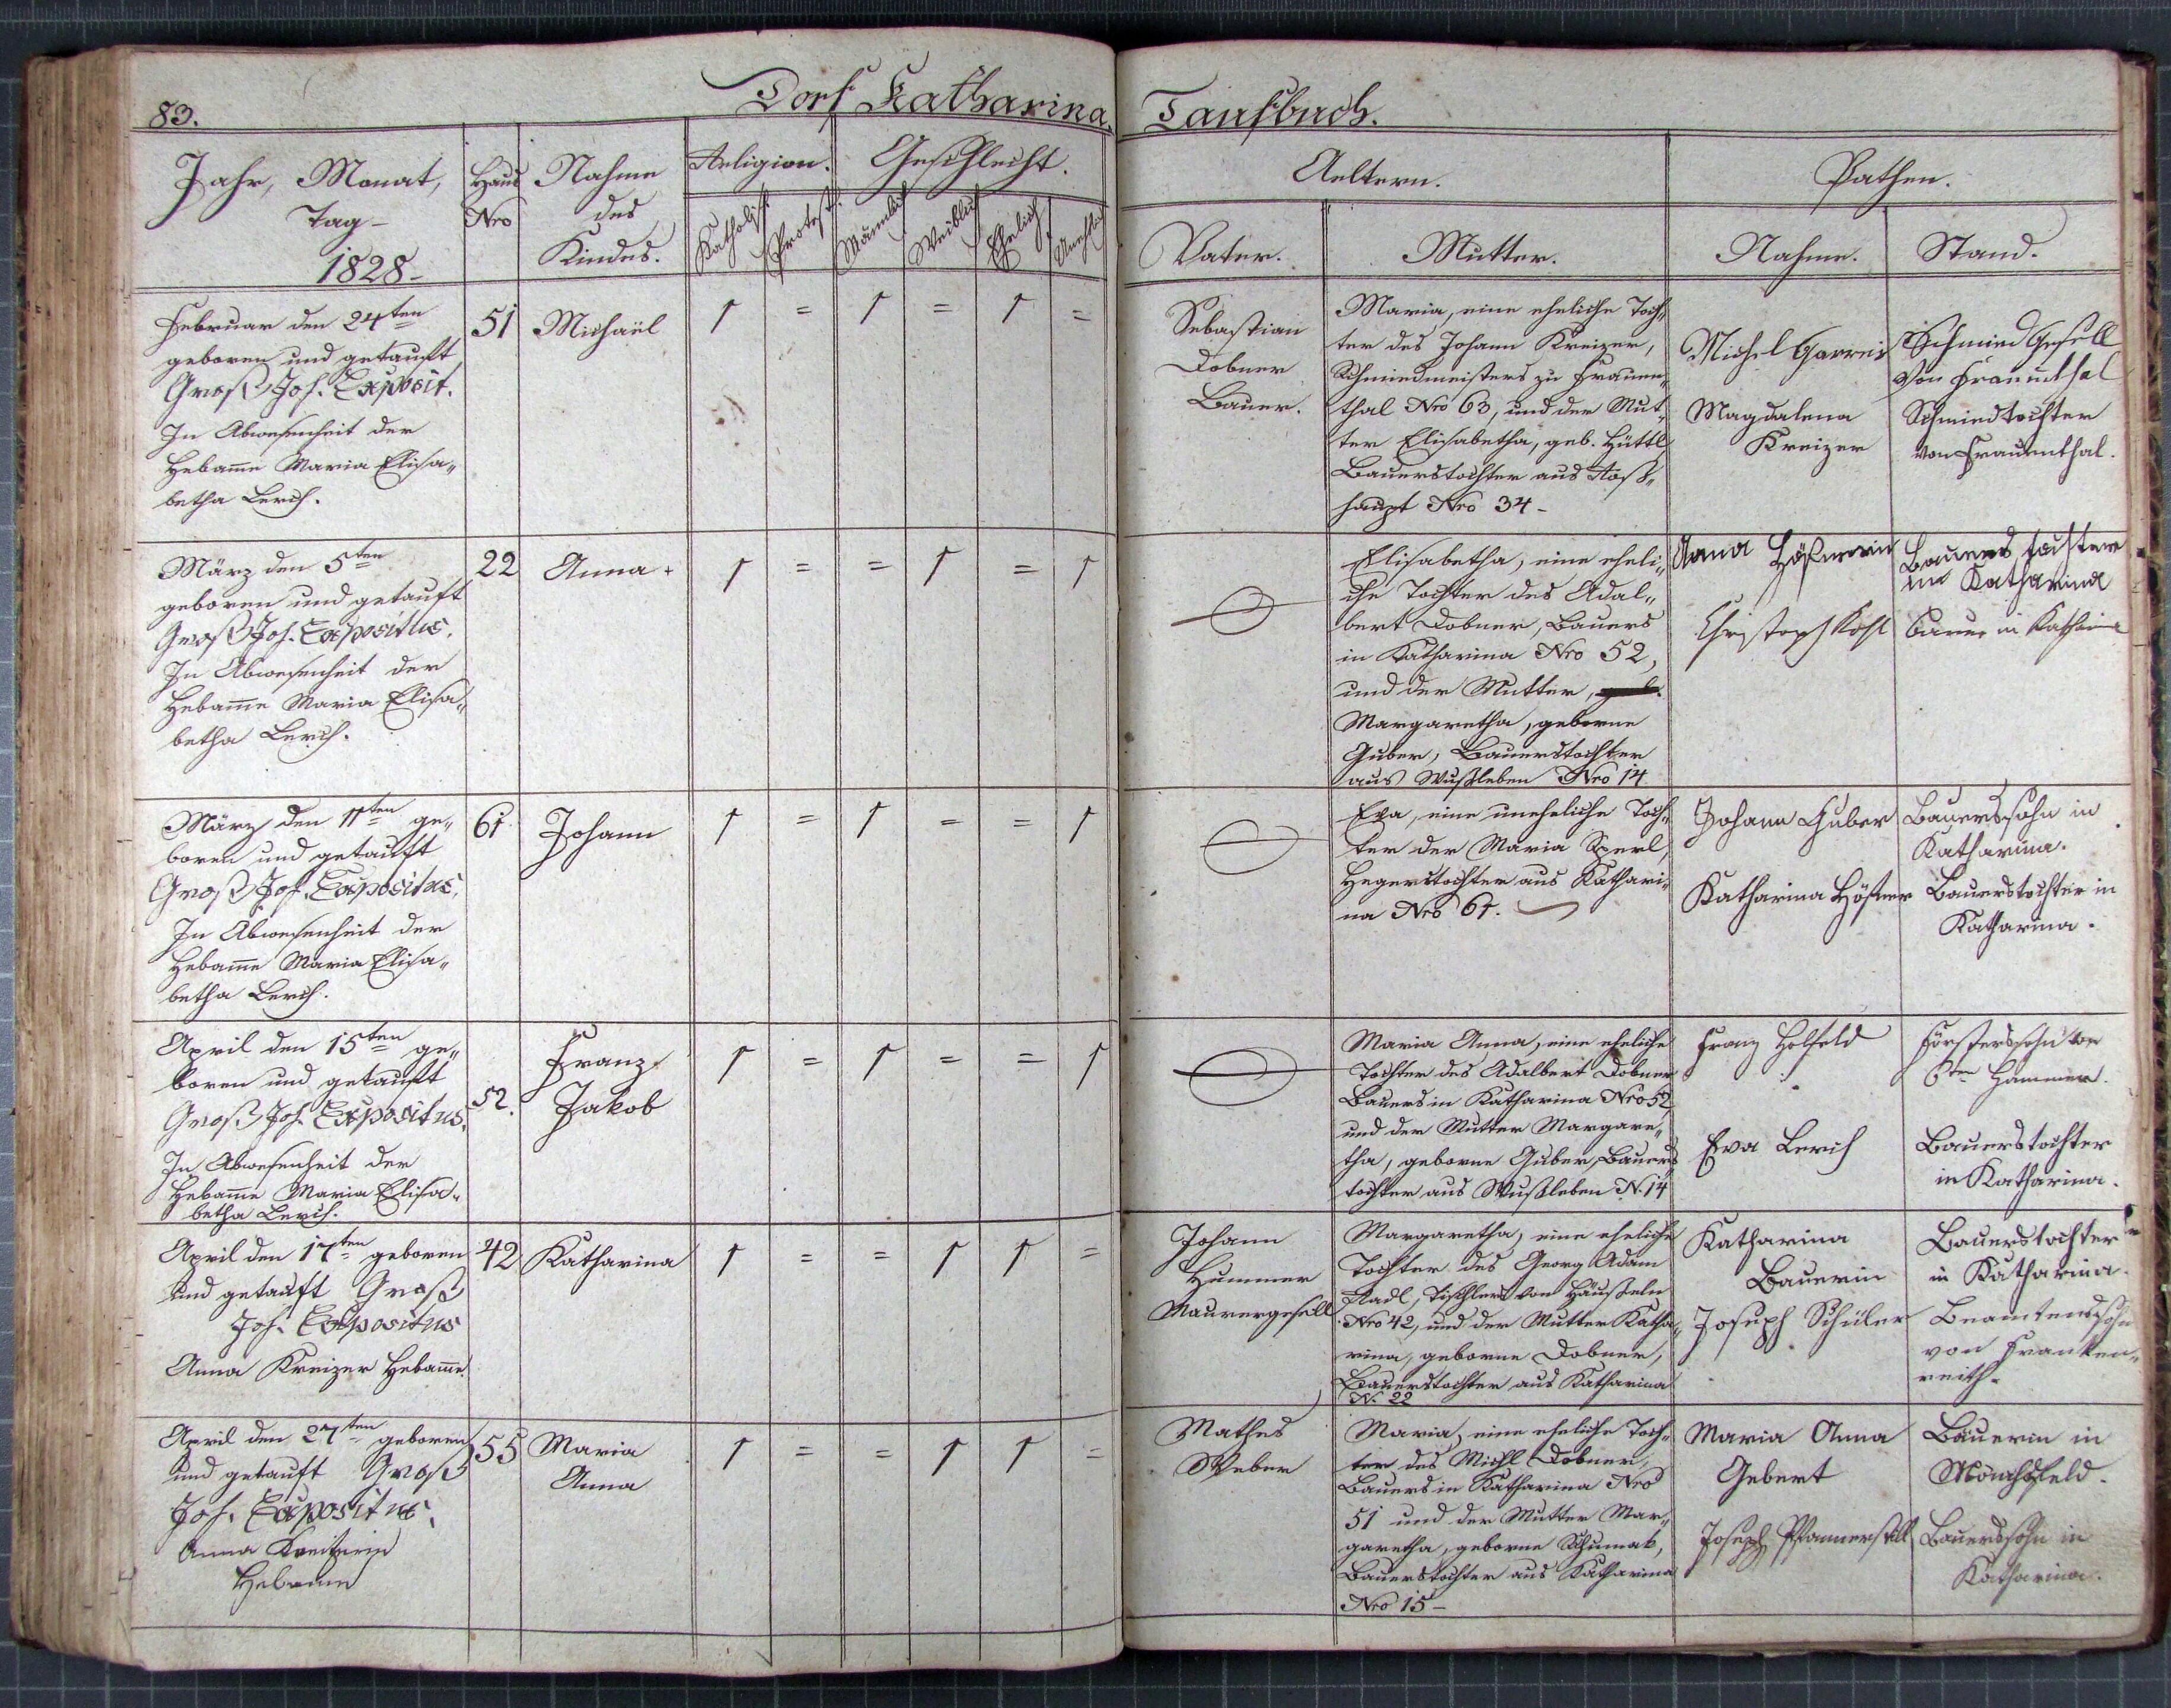 83.
Dorf Katharina
Taufbuch.
Jahr, Monat,
Tag -
1828 -
Haus
Nro
Nahme
des
Kindes.
Religion.
Katholisch
Protest.
Geschlecht.
Männlich
Weiblich
Ehelich
Unehlich
Aeltern.
Vater.
Mutter.
Pathen.
Nahme.
Stand.
Februar den 24ten
geboren und getauft
Groß Joh. Exposit.
In Abwesenheit der
Hebamme Maria Elisa„
betha Lerch.
51
Michaël
1 = 1 = 1 =
Sebastian
Dobner
Bauer.
Maria, eine eheliche Toch„
ter des Johann Kreizer,
Schmiedmeisters zu Frauen„
thal Nro 63, und der Mut„
ter Elisabetha, geb. Hüttl
Bauerstochter aus Roß„
haupt Nro 34 -
Michel Garreis
Schmied Gesell
von Frauenthal
Magdalena
Kreizer
Schmiedtochter
von Frauenthal.
März den 5ten
geboren und getauft
Groß Joh. Expositus.
In Abwesenheit der
Hebamme Maria Elisa„
betha Lerch.
22
Anna.
1 = = 1 = 1
Elisabetha, eine eheli„
che Tochter des Adal„
bert Dobner, Bauers
in Katharina Nro 52,
und der Mutter,
Margaretha, geborne
Guber, Bauerstochter
aus Wußleben Nro 14
Anna
Bauers tochter
in Katharina
Christoph Kohl
Bauer in Katharina
März den 11ten ge„
boren und getauft
Groß Joh. Expositus.
In Abwesenheit der
Hebamme Maria Elisa„
betha Lerch.
61
Johann
1 = 1 = = 1
Eva, eine uneheliche Toch„
ter der Maria Sperl,
Hegerstochter aus Kathari„
na Nro 61.
Johann Guber
Bauerssohn in
Katharina.
Katharina Hößner
Bauerstochter in
Katharina.
April den 15ten ge„
boren und getauft
Groß Joh. Expositus.
In Abwesenheit der
Hebamme Maria Elisa„
betha Lerch.
52.
Franz
Jakob
1 = 1 = = 1
Maria Anna, eine eheliche
Tochter des Adalbert Dobner
Bauers in Katharina Nro 52
und der Mutter Margare„
tha, geborne Guber, Bauers
tochter aus Wußleben N. 14
Franz Holfeld
Försterssohn von
Hammer.
Eva Lerch
Bauerstochter
in Katharina.
April den 17ten geboren
und getauft Groß
Joh. Expositus
Anna Kreizer Hebamme.
42
Katharina
1 = = 1 1 =
Johann
Hummer
Maurergesell
Margaretha, eine eheliche
Tochter des Georg Adam
Stadl, Tischlers von Häußeln
Nro 42, und der Mutter Katha„
rina, geborne Dobner,
Bauerstochter aus Katharina
N. 22
Katharina
Bauerin
Bauerstochter
in Katharina.
Joseph Schüler
Beamtenssohn
von Franken„
reith.
April den 27ten geboren
und getauft Groß
Joh. Expositus.
Anna Kreitzerin
Hebamm
55
Maria
Anna
1 = = 1 1 =
Mathes
Weber
Maria, eine eheliche Toch„
ter des Michl Dobner,
Bauers in Katharina Nro
51 und der Mutter Mar„
garetha, geborne Schumak,
Bauerstochter aus Katharina
Nro 15 -
Maria Anna
Gebert
Bäuerin in
Mönchsfeld.
Joseph Pfannerstill
Bauerssohn in
Katharina.